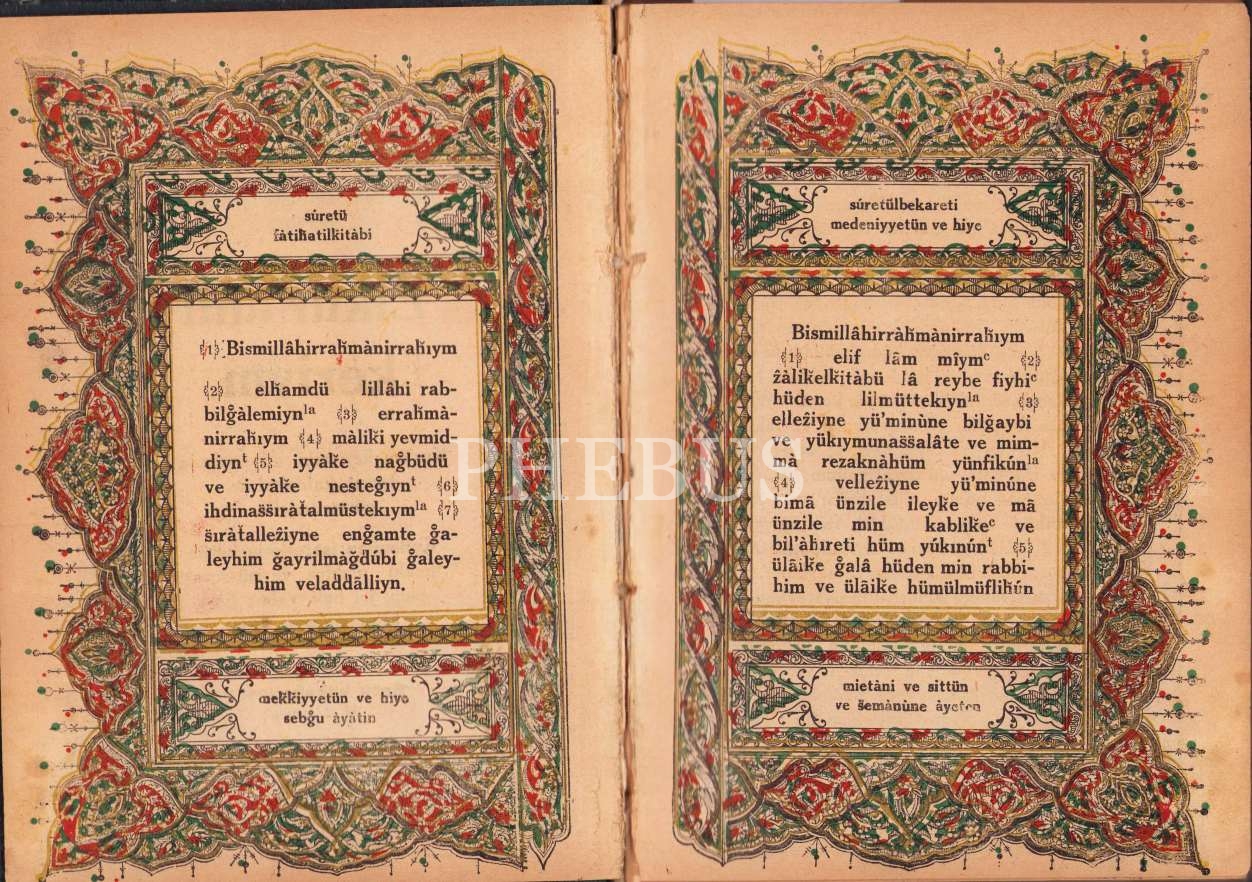 sûretü
fàtiħatilkitàbi
﴾1﴿ Bismillâhirraħmànirraħıym
﴾2﴿ elħamdü lillâhi rab-
bilğàlemiynˡᵃ ﴾3﴿ erraħmà-
nirraħıym ﴾4﴿ màliki yevmid-
diynᵗ ﴾5﴿ iyyàke nağbüdü
ve iyyàke nesteğıynᵗ ﴾6﴿
ihdinaṡṡıràtalmüstekıymˡᵃ ﴾7﴿
ṡıràtalleżiyne enğamte ğa-
leyhim ğayrilmàğdûbi ğaley-
him veladdālliyn.
mekkiyyetün ve hiye
sebğu âyàtin
sûretülbekareti
medeniyyetün ve hiye
Bismillâhirràħmànirraħıym
﴾1﴿ elif lām mîymᶜ ﴾2﴿
żàlikelkitàbü lâ reybe fiyhiᶜ
hüden lilmüttekıynˡᵃ ﴾3﴿
elleżiyne yü'minùne bilğaybi
ve yükıymunaṡṡalâte ve mim-
mà rezaknàhüm yünfikúnˡᵃ
﴾4﴿ velleżiyne yü'minúne
bimā ünzile ileyke ve mā
ünzile min kablikeᶜ ve
bil'àħıreti hüm yúkınúnᵗ ﴾5﴿
ülāike ğalâ hüden min rabbi-
him ve ülāike hümülmüfliħún
mietàni ve sittün
ve šemànùne àyeten
PHEBUS